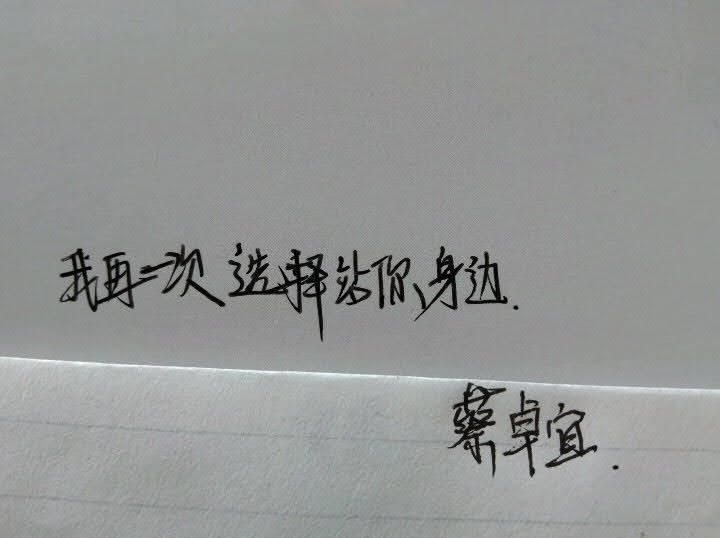 我再一次选择站你身边.
蔡卓宜.